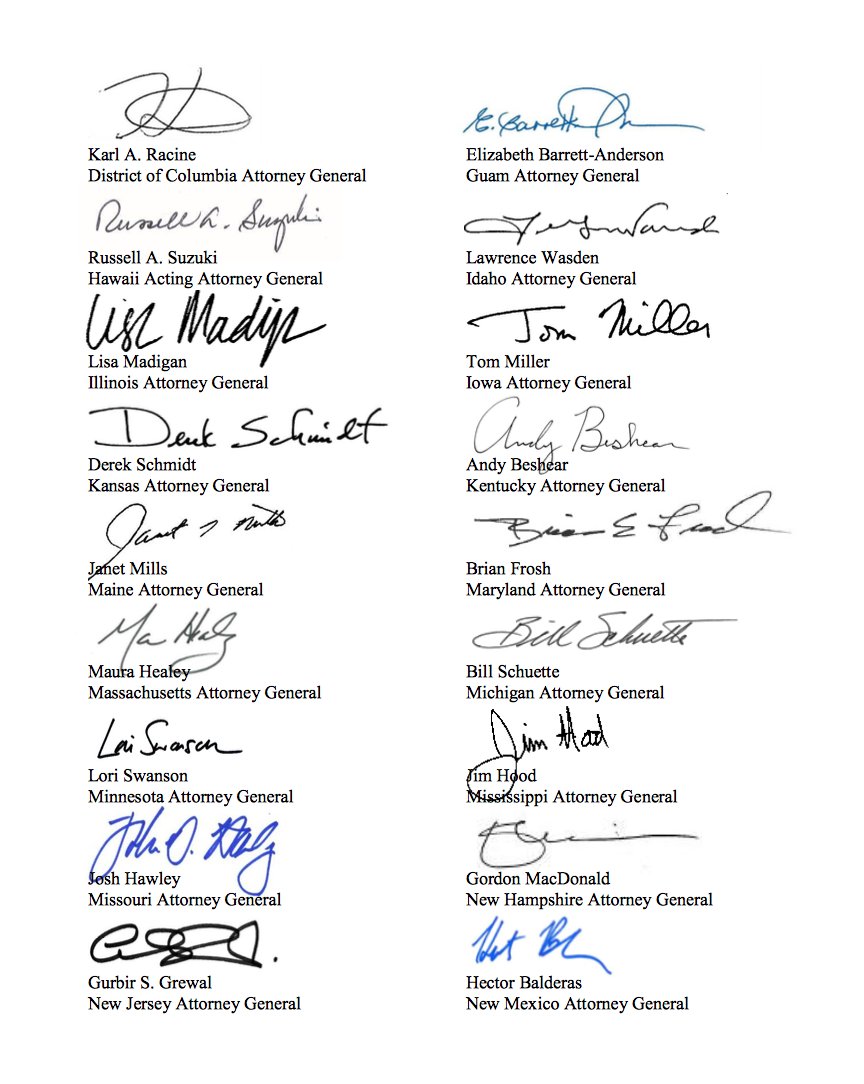 Karl A. Racine
District of Columbia Attorney General
E. Barrett
Elizabeth Barrett-Anderson
Guam Attorney General
Russell A. Suzuki
Russell A. Suzuki
Hawaii Acting Attorney General
Lawrence Wasden
Idaho Attorney General
Lisa Madigan
Lisa Madigan
Illinois Attorney General
Tom Miller
Tom Miller
Iowa Attorney General
Derek Schmidt
Derek Schmidt
Kansas Attorney General
Andy Beshear
Andy Beshear
Kentucky Attorney General
Janet T Mills
Janet Mills
Maine Attorney General
Brian E Frosh
Brian Frosh
Maryland Attorney General
Maura Healey
Massachusetts Attorney General
Bill Schuette
Bill Schuette
Michigan Attorney General
Lori Swanson
Lori Swanson
Minnesota Attorney General
Jim Hood
Jim Hood
Mississippi Attorney General
Josh Hawley
Missouri Attorney General
Gordon MacDonald
New Hampshire Attorney General
Gurbir S. Grewal
New Jersey Attorney General
Hector Balderas
New Mexico Attorney General